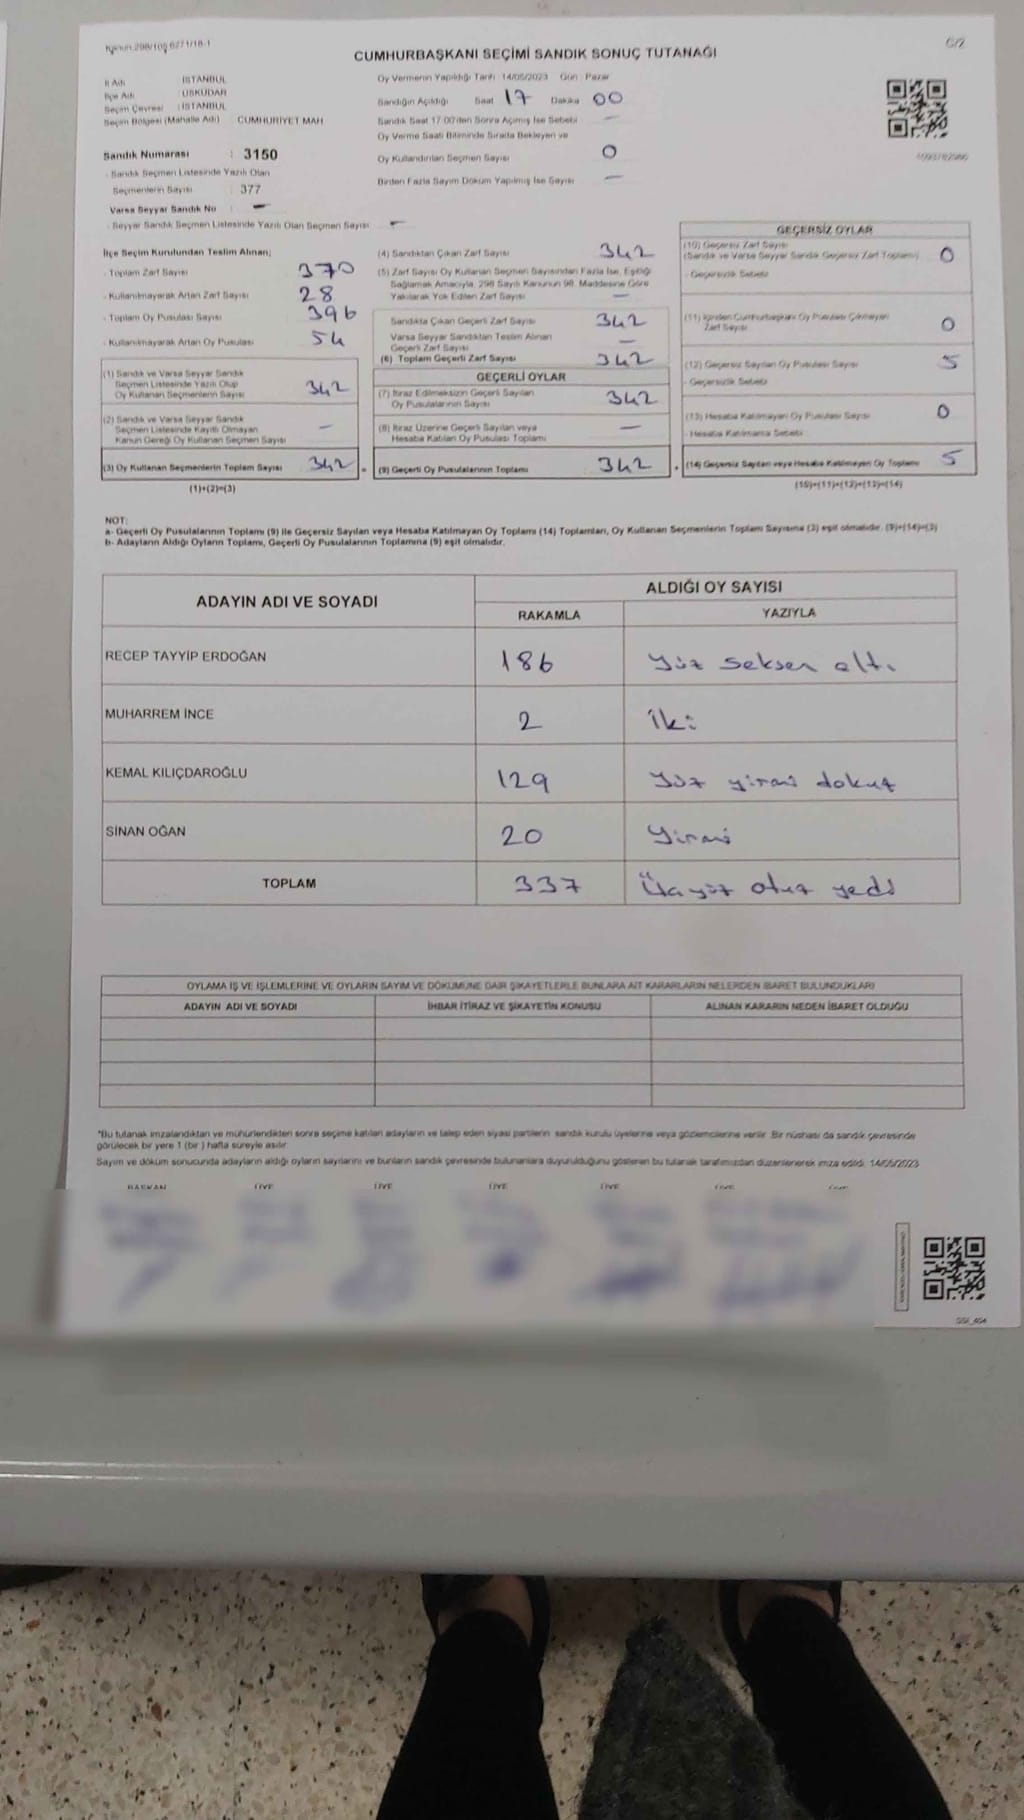 Kanun:298/105 6271/18-1
C/2
CUMHURBAŞKANI SEÇİMİ SANDIK SONUÇ TUTANAĞI
İl Adı : İSTANBUL
İlçe Adı : ÜSKÜDAR
Seçim Çevresi : İSTANBUL
Seçim Bölgesi (Mahalle Adı) CUMHURİYET MAH
Sandık Numarası : 3150
- Sandık Seçmen Listesinde Yazılı Olan
Seçmenlerin Sayısı : 377
Varsa Seyyar Sandık No : -
- Seyyar Sandık Seçmen Listesinde Yazılı Olan Seçmen Sayısı -
Oy Vermenin Yapıldığı Tarih 14/05/2023 Gün : Pazar
Sandığın Açıldığı Saat 17 Dakika 00
Sandık Saat 17:00'den Sonra Açılmış İse Sebebi -
Oy Verme Saati Bitiminde Sırada Bekleyen ve
Oy Kullandırılan Seçmen Sayısı 0
Birden Fazla Sayım Döküm Yapılmış İse Sayısı -
İlçe Seçim Kurulundan Teslim Alınan;
- Toplam Zarf Sayısı 370
- Kullanılmayarak Artan Zarf Sayısı 28
- Toplam Oy Pusulası Sayısı 396
- Kullanılmayarak Artan Oy Pusulası 54
(1) Sandık ve Varsa Seyyar Sandık
Seçmen Listesinde Yazılı Olup
Oy Kullanan Seçmenlerin Sayısı 342
(2) Sandık ve Varsa Seyyar Sandık
Seçmen Listesinde Kayıtlı Olmayan
Kanun Gereği Oy Kullanan Seçmen Sayısı -
(3) Oy Kullanan Seçmenlerin Toplam Sayısı 342 =
(1)+(2)=(3)
(4) Sandıktan Çıkan Zarf Sayısı 342
(5) Zarf Sayısı Oy Kullanan Seçmen Sayısından Fazla İse, Eşitliği
Sağlamak Amacıyla, 298 Sayılı Kanunun 98. Maddesine Göre
Yakılarak Yok Edilen Zarf Sayısı -
Sandıkta Çıkan Geçerli Zarf Sayısı 342
Varsa Seyyar Sandıktan Teslim Alınan
Geçerli Zarf Sayısı -
(6) Toplam Geçerli Zarf Sayısı 342
GEÇERLİ OYLAR
(7) İtiraz Edilmeksizin Geçerli Sayılan
Oy Pusulalarının Sayısı 342
(8) İtiraz Üzerine Geçerli Sayılan veya
Hesaba Katılan Oy Pusulası Toplamı -
(9) Geçerli Oy Pusulalarının Toplamı 342 +
GEÇERSİZ OYLAR
(10) Geçersiz Zarf Sayısı
(Sandık ve Varsa Seyyar Sandık Geçersiz Zarf Toplamı) 0
- Geçersizlik Sebebi
(11) İçinden Cumhurbaşkanı Oy Pusulası Çıkmayan
Zarf Sayısı 0
(12) Geçersiz Sayılan Oy Pusulası Sayısı 5
- Geçersizlik Sebebi
(13) Hesaba Katılmayan Oy Pusulası Sayısı 0
- Hesaba Katılmama Sebebi
(14) Geçersiz Sayılan veya Hesaba Katılmayan Oy Toplamı 5
(10)+(11)+(12)+(13)=(14)
NOT:
a- Geçerli Oy Pusulalarının Toplamı (9) ile Geçersiz Sayılan veya Hesaba Katılmayan Oy Toplamı (14) Toplamları, Oy Kullanan Seçmenlerin Toplam Sayısına (3) eşit olmalıdır. (9)+(14)=(3)
b- Adayların Aldığı Oyların Toplamı, Geçerli Oy Pusulalarının Toplamına (9) eşit olmalıdır.
ADAYIN ADI VE SOYADI
ALDIĞI OY SAYISI
RAKAMLA YAZIYLA
RECEP TAYYİP ERDOĞAN 186 Yüz seksen altı
MUHARREM İNCE 2 İki
KEMAL KILIÇDAROĞLU 129 Yüz yirmi dokuz
SİNAN OĞAN 20 Yirmi
TOPLAM 337 Üçyüz otuz yedi
OYLAMA İŞ VE İŞLEMLERİNE VE OYLARIN SAYIM VE DÖKÜMÜNE DAİR ŞİKAYETLERLE BUNLARA AİT KARARLARIN NELERDEN İBARET BULUNDUKLARI
ADAYIN ADI VE SOYADI İHBAR İTİRAZ VE ŞİKAYETİN KONUSU ALINAN KARARIN NEDEN İBARET OLDUĞU
*Bu tutanak imzalandıktan ve mühürlendikten sonra seçime katılan adayların ve talep eden siyasi partilerin sandık kurulu üyelerine veya gözlemcilerine verilir. Bir nüshası da sandık çevresinde
görülecek bir yere 1 (bir ) hafta süreyle asılır.
Sayım ve döküm sonucunda adayların aldığı oyların sayılarını ve bunların sandık çevresinde bulunanlara duyurulduğunu gösteren bu tutanak tarafımızdan düzenlenerek imza edildi. 14/05/2023
BAŞKAN ÜYE ÜYE ÜYE ÜYE ÜYE ÜYE